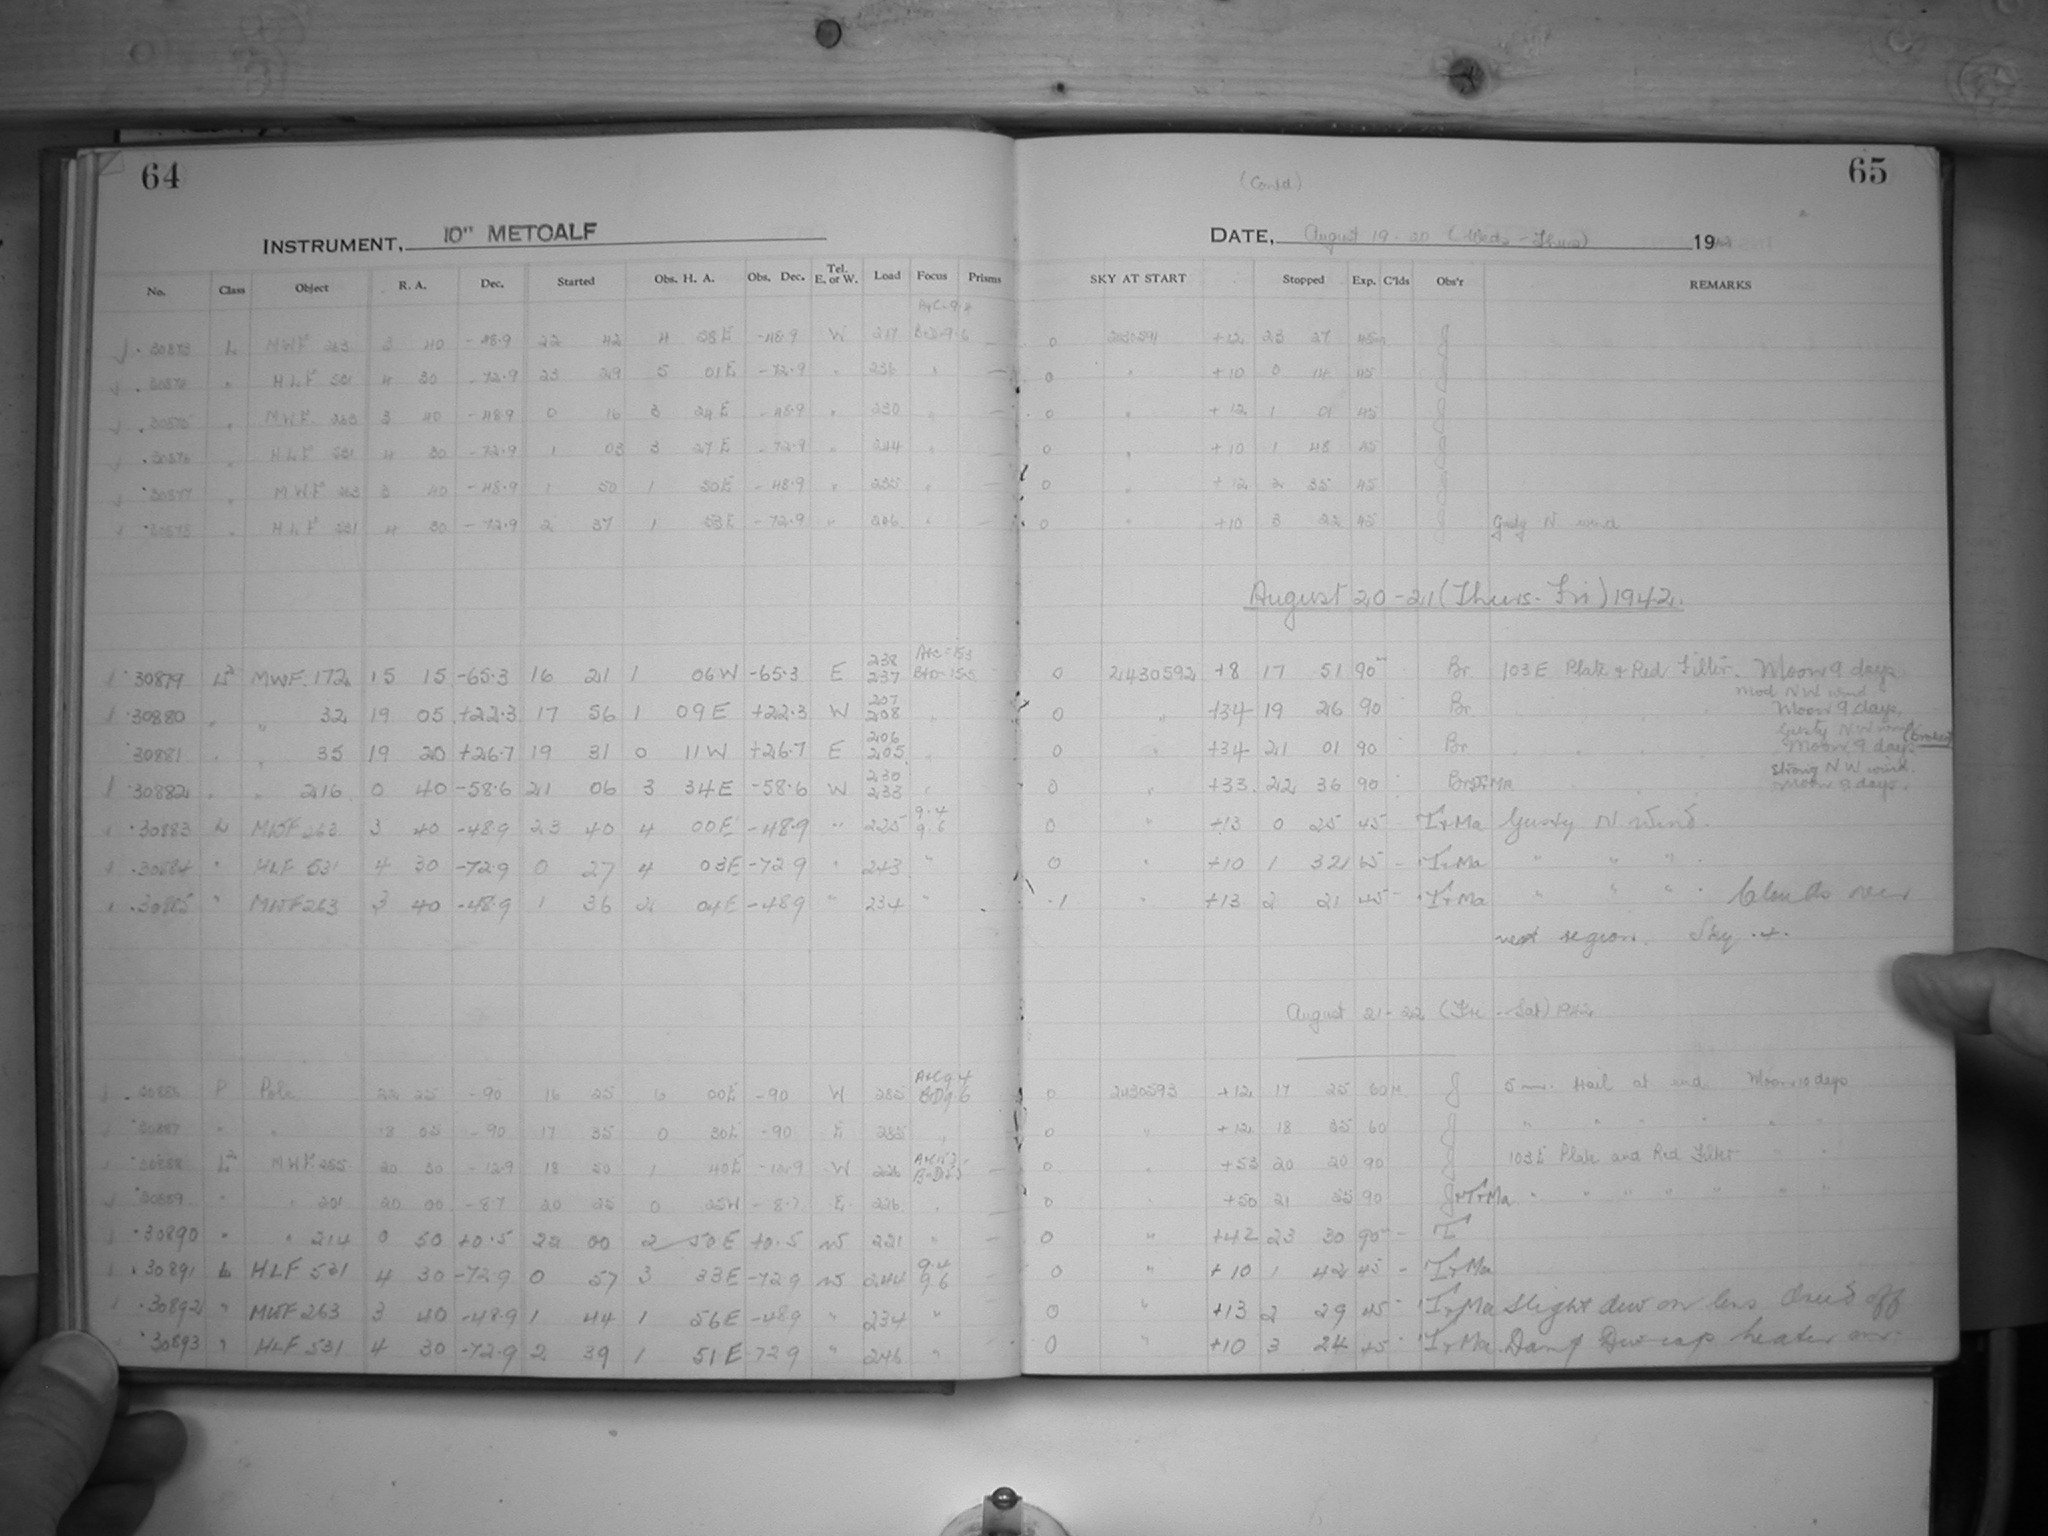 64
INSTRUMENT, 10" METCALF
No. Class Object R. A. Dec. Started Obs. H. A. Obs. Dec. Tel. E. or W. Load Focus Prisms
30873 L MWF 263 3 40 -48.9 22 42 4 28E -48.9 W 217
30874 " HLF 531 4 30 -72.9 23 29 5 01E -72.9 " 236 "
30875 " MWF 263 3 40 -48.9 0 16 3 24E -48.9 " 230 "
30876 " HLF 531 4 30 -72.9 1 03 3 27E -72.9 " 244 "
30877 " MWF 263 3 40 -48.9 1 50 1 50E -48.9 " 235 "
30878 " HLF 531 4 30 -72.9 2 37 1 53E -72.9 " 246 "
30879 L2 MWF 172 15 15 -65.3 16 21 1 06W -65.3 E 238 237
30880 " " 32 19 05 +22.3 17 56 1 09E +22.3 W 207 208 "
30881 " " 35 19 20 +26.7 19 31 0 11W +26.7 E 206 205 "
30882 " " 216 0 40 -58.6 21 06 3 34E -58.6 W 230 233 "
30883 L MWF 263 3 40 -48.9 23 40 4 00E -48.9 " 225 9.4 9.6
30884 " HLF 531 4 30 -72.9 0 27 4 03E -72.9 " 243 "
30885 " MWF 263 3 40 -48.9 1 36 2 04E -48.9 " 234 "
30886 P Pole 22 25 -90 16 25 6 00E -90 W 285 A+C 9.4 B+D 9.6
30887 " " 18 05 -90 17 35 0 30E -90 E 285 "
30888 L2 MWF 255 20 30 -12.9 18 50 1 40E -12.9 W 226
30889 " " 201 20 00 -8.7 20 25 0 25W -8.7 E 226 "
30890 " " 214 0 50 +0.5 22 00 2 50E +0.5 W 221 "
30891 L HLF 531 4 30 -72.9 0 57 3 33E -72.9 W 244 9.4 9.6
30892 " MWF 263 3 40 -48.9 1 44 1 56E -48.9 " 234 "
30893 " HLF 531 4 30 -72.9 2 39 1 51E -72.9 " 246 "
(Contd)
65
DATE, August 19-20 (Weds-Thurs) 19
SKY AT START Stopped Exp. C'lds Obs'r REMARKS
0 2430591 +12 23 27 45m
0 " +10 0 14 45
0 " +12 1 01 45
0 " +10 1 48 45
0 " +12 2 35 45
0 " +10 3 22 45 Gusty N wind
August 20-21 (Thurs-Fri) 1942.
0 2430592 +8 17 51 90m Br 103E Plate & Red Filter. Moon 9 days
Mod NW wind
0 " +34 19 26 90 Br " " " Moon 9 days.
Gusty NW wind (broken)
0 " +34 21 01 90 Br " " " Moon 9 days
Strong NW wind.
0 " +33 22 36 90 Moon 9 days.
0 " +13 0 25 45 TrMa Gusty N Wind.
0 " +10 1 32 65 - TrMa " " "
-1 " +13 2 21 45 - TrMa " " " Clouds over
next region. Sky
August 21-22 (Fri-Sat) 1942
0 2430593 +12 17 25 60m J Hail at end. Moon 10 days
0 " +12 18 35 60 " " " " "
0 " +53 20 20 90 103E Plate and Red Filter
0 " +50 21 55 90 J+TrMa " " " " " " "
0 " +42 23 30 90 - Tr
0 " +10 1 42 45 - TrMa
0 " +13 2 29 45 - TrMa Slight dew on lens Dried off
0 " +10 3 24 45 - TrMa Damp Dew cap heater on.